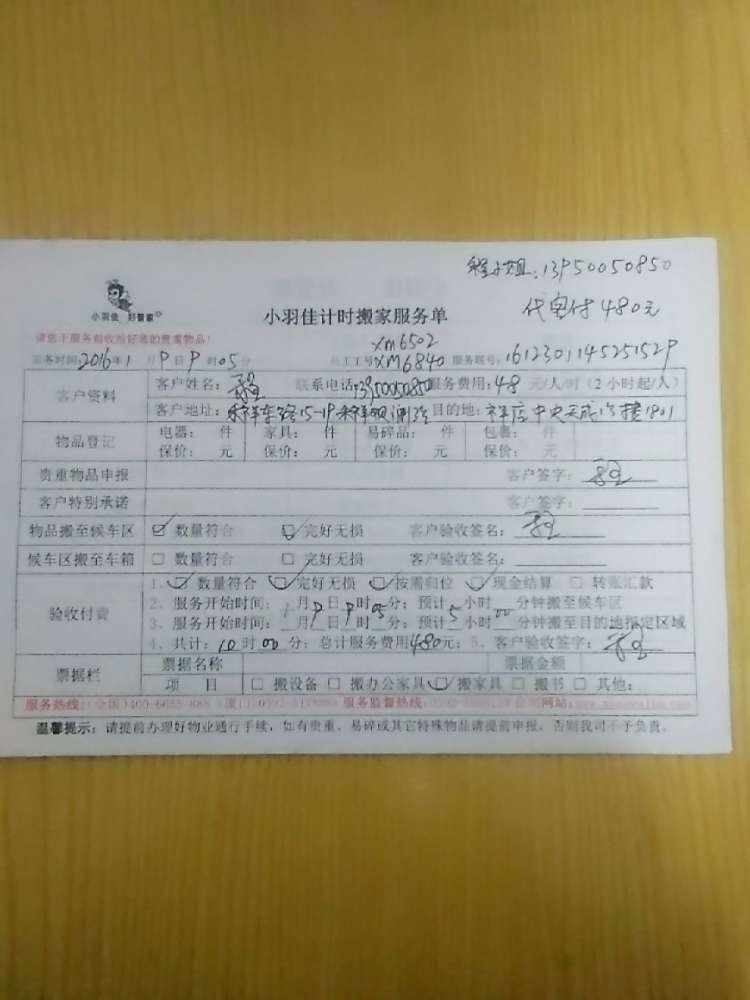 程小姐:13950050850
代电付480元
小羽佳 好管家
小羽佳计时搬家服务单
请您于服务前收拾好您的贵重物品!
xm6502
服务时间:2016年1月9日9时05分 员工工号 XM6840 服务联号:1612301145251529
客户资料
客户姓名:程 联系电话:13950050850 服务费用:48元/人/时(2小时起/人)
客户地址: 15-19 目的地: 中央天成 1801
物品登记
电器: 件 家具: 件 易碎品: 件 包裹: 件
保价: 元 保价: 元 保价: 元 保价: 元
贵重物品申报 客户签字:程
客户特别承诺 客户签字:
物品搬至候车区 ☑ 数量符合 ☑ 完好无损 客户验收签名:程
候车区搬至车箱 □ 数量符合 □ 完好无损 客户验收签名:
验收付费
1、☑ 数量符合 ☑ 完好无损 ☑ 按需归位 ☑ 现金结算 □ 转账汇款
2、服务开始时间:1月9日9时05分;预计5小时00分钟搬至候车区
3、服务开始时间: 月 日 时 分;预计 小时 分钟搬至目的地指定区域
4、共计:10时00分;总计服务费用480元;5、客户验收签字:程
票据栏
票据名称 票据金额
项 目 □ 搬设备 □ 搬办公家具 ☑ 搬家具 □ 搬书 □ 其他:
服务热线:(全国)400-6055-888 服务监督热线: 网址:
温馨提示:请提前办理好物业通行手续,如有贵重、易碎或其它特殊物品请提前申报,否则我司不予负责。